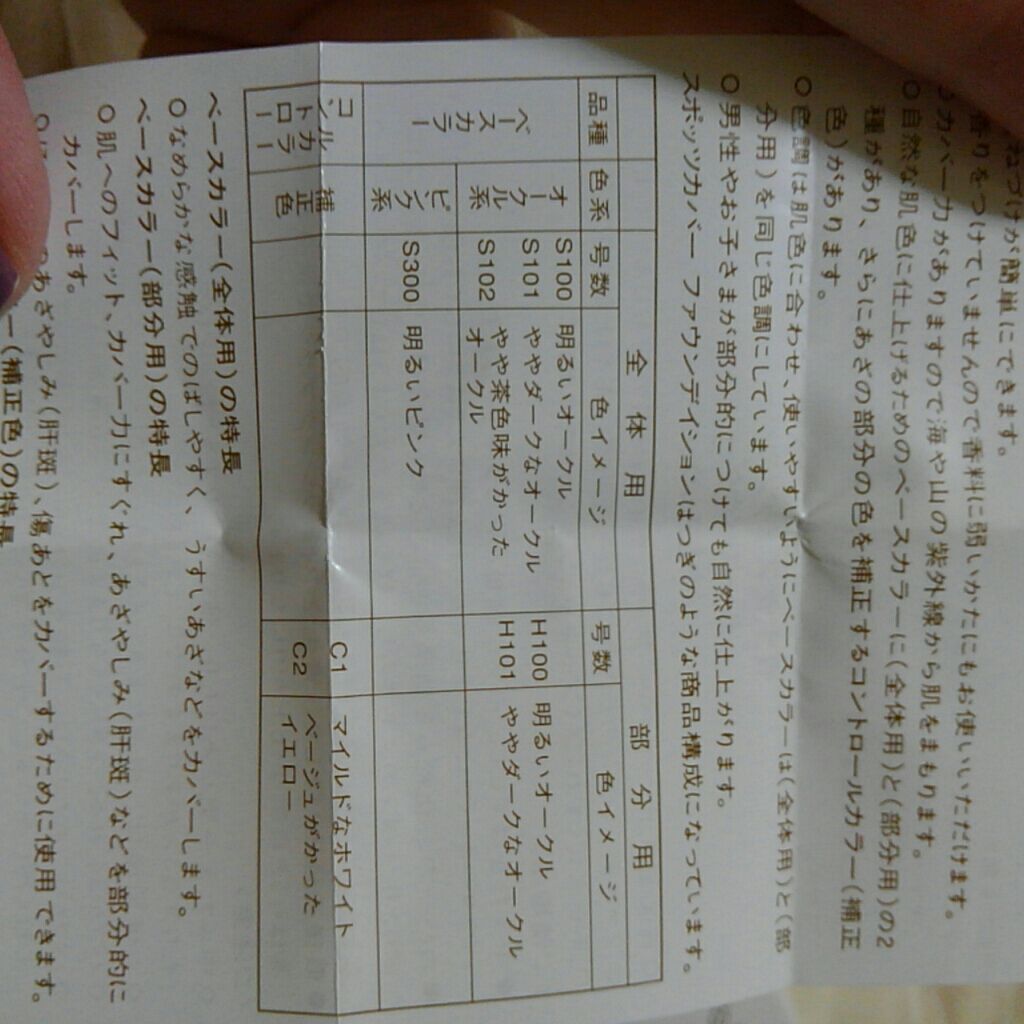 ねづけが簡単にできます。
香りをつけていませんので香料に弱いかたにもお使いいただけます。
カバー力がありますので海や山の紫外線から肌をまもります。
○自然な肌色に仕上げるためのベースカラーに(全体用)と(部分用)の2
種があり、さらにあざの部分の色を補正するコントロールカラー(補正
色)があります。
○色調は肌色に合わせ、使いやすいようにベースカラーは(全体用)と(部
分用)を同じ色調にしています。
○男性やお子さまが部分的につけても自然に仕上がります。
スポッツカバー ファウンデイションはつぎのような商品構成になっています。
全体用 部分用
品種 色系 号数 色イメージ 号数 色イメージ
ベースカラー オークル系 S100 明るいオークル H100 明るいオークル
S101 ややダークなオークル H101 ややダークなオークル
S102 やや茶色味がかった
オークル
ピンク系 S300 明るいピンク
コントロールカラー 補正色 C1 マイルドなホワイト
C2 ベージュがかった
イエロー
ベースカラー(全体用)の特長
○なめらかな感触でのばしやすく、うすいあざなどをカバーします。
ベースカラー(部分用)の特長
○肌へのフィット、カバー力にすぐれ、あざやしみ(肝斑)などを部分的に
カバーします。
ー(補正色)の特長
○あざやしみ(肝斑)、傷あとをカバーするために使用できます。